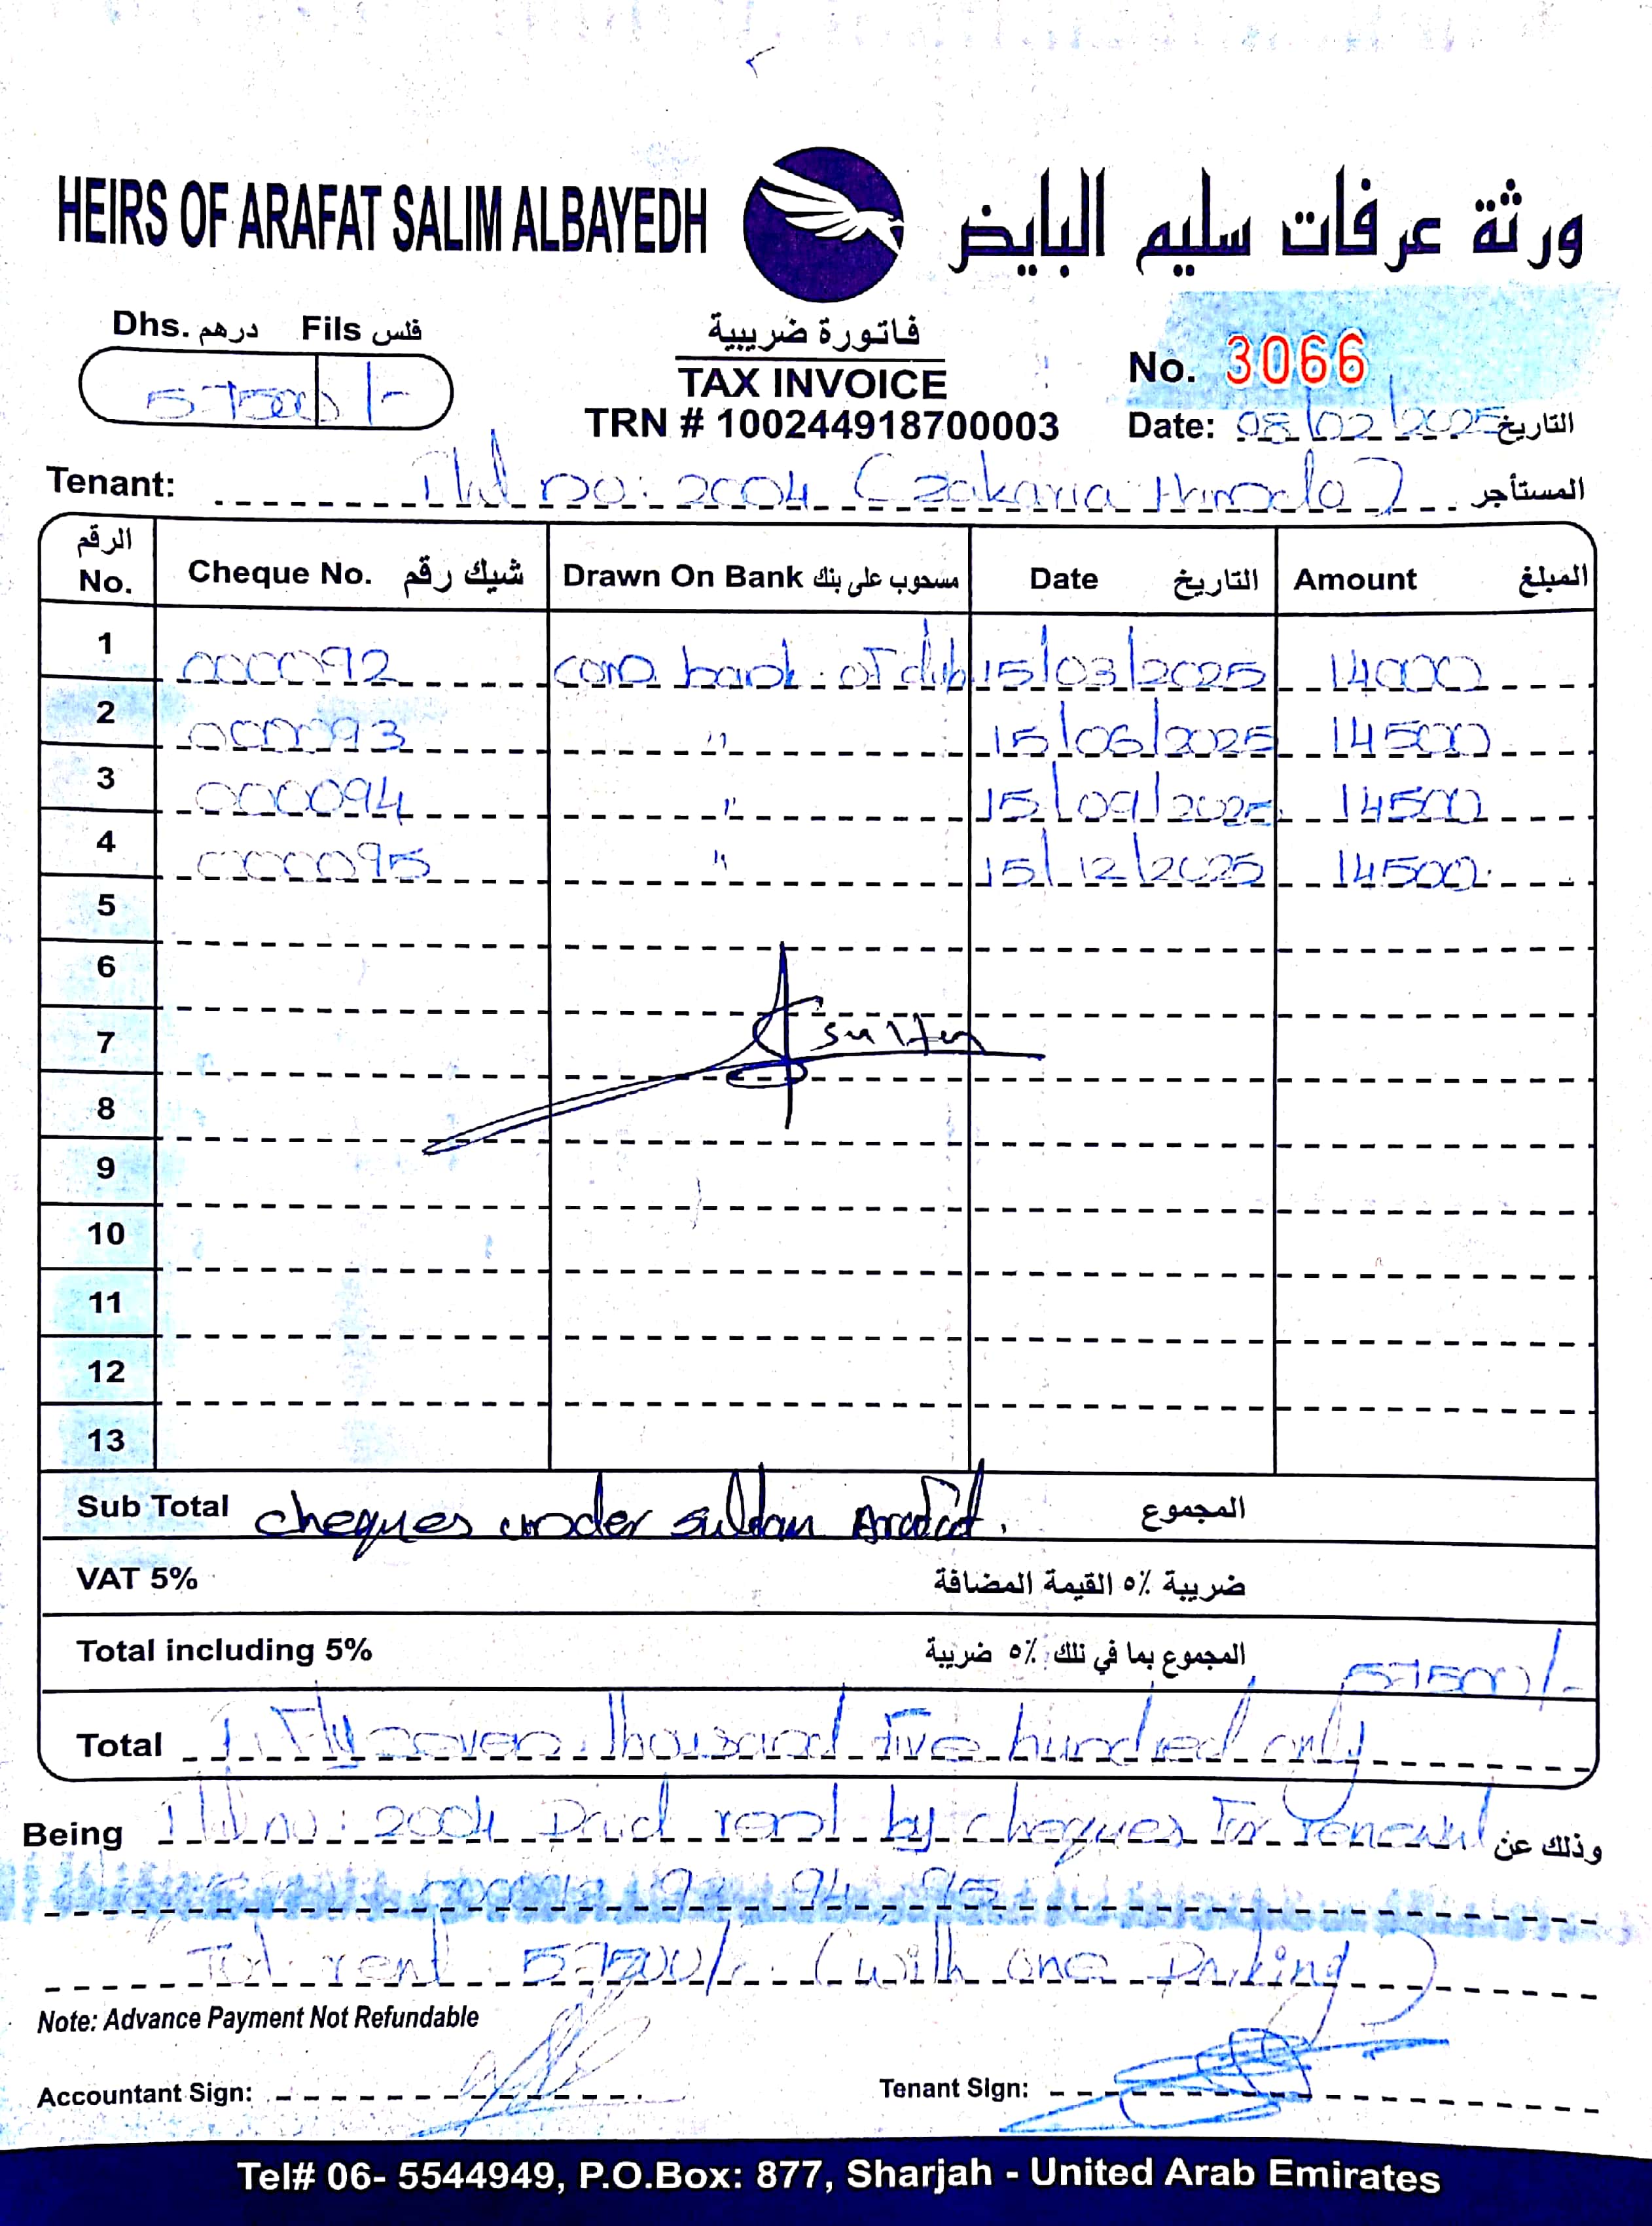 HEIRS OF ARAFAT SALIM ALBAYEDH ورثة عرفات سليم البايض
Dhs. درهم Fils فلس
57500 /-
فاتورة ضريبية
TAX INVOICE
TRN # 100244918700003
No. 3066
Date: 08/02/2025 التاريخ
Tenant: no: 2004 (Zakaria ) المستأجر
الرقم No. Cheque No. شيك رقم Drawn On Bank مسحوب على بنك Date التاريخ Amount المبلغ
1 000092 com bank of dub 15/03/2025 14000
2 000093 " 15/06/2025 14500
3 000094 " 15/09/2025 14500
4 000095 " 15/12/2025 14500
5
6
7 sultan
8
9
10
11
12
13
Sub Total cheques under sultan Arafat. المجموع
VAT 5% ضريبة ٥٪ القيمة المضافة
Total including 5% المجموع بما في ذلك ٥٪ ضريبة 57500/-
Total Fifty seven thousand five hundred only
Being no: 2004 Paid rent by cheques for renewal وذلك عن
94 95
Tot. rent 57500/- (with one Parking)
Note: Advance Payment Not Refundable
Accountant Sign: Tenant Sign:
Tel# 06- 5544949, P.O.Box: 877, Sharjah - United Arab Emirates